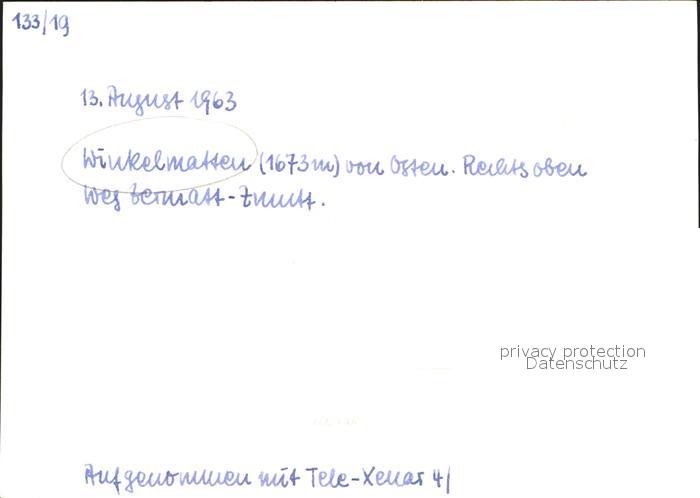 133/19
13. August 1963
Winkelmatten (1673m) von Osten. Rechts oben
Weg Zermatt-Zmutt.
privacy protection
Datenschutz
Aufgenommen mit Tele-Xenar 4/